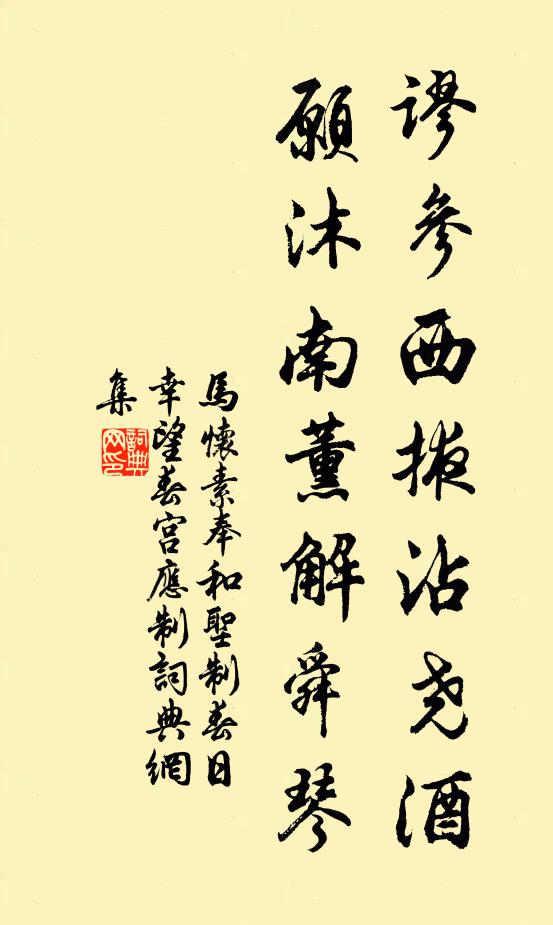 谬参西掖沾尧酒
願沐南薰解舜琴
馬懷素奉和聖制春日
幸望春宮應制詞典網
集
詞典网印